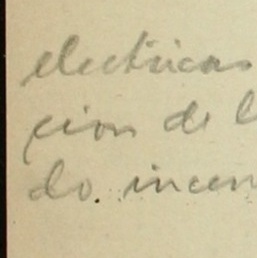 electricas
cion de l
do. incen